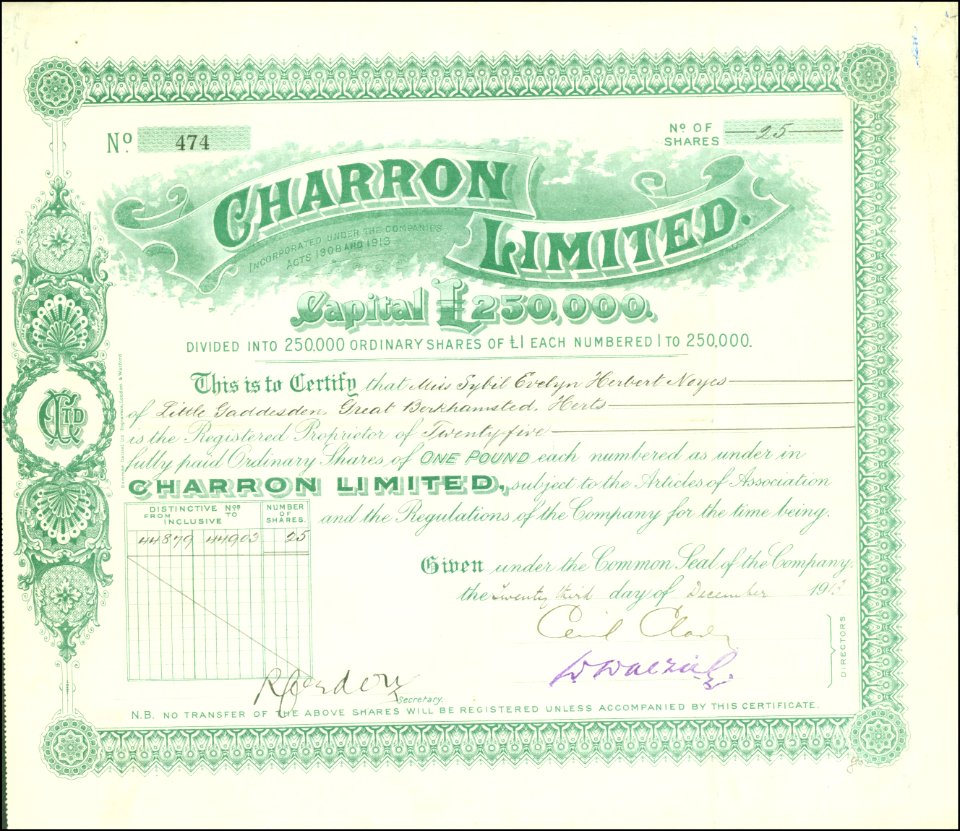 Nº 474
Nº OF SHARES 25
CHARRON LIMITED.
INCORPORATED UNDER THE COMPANIES ACTS 1908 AND 1913
Capital £250,000.
DIVIDED INTO 250,000 ORDINARY SHARES OF £1 EACH NUMBERED 1 TO 250,000.
This is to Certify that Miss Sybil Evelyn Herbert Noyes
of Little Gaddesden, Great Berkhamsted, Herts
is the Registered Proprietor of Twenty five
fully paid Ordinary Shares of ONE POUND each numbered as under in
CHARRON LIMITED, subject to the Articles of Association
and the Regulations of the Company for the time being.
DISTINCTIVE Nºs
FROM TO
INCLUSIVE
NUMBER OF SHARES.
44879 44903 25
Given under the Common Seal of the Company.
the Twenty third day of December 191
DIRECTORS
Secretary
N.B. NO TRANSFER OF THE ABOVE SHARES WILL BE REGISTERED UNLESS ACCOMPANIED BY THIS CERTIFICATE.
C LTD